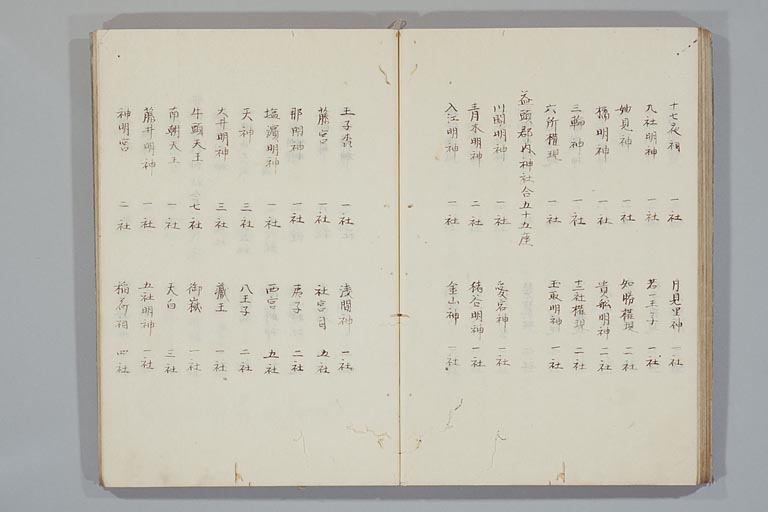 十七夜祠 一社 月見里神 一社
九社明神 一社 若一王子 一社
妙見神 一社 知勝権現 二社
橘明神 一社 貴舩明神 二社
三輪神 一社 十二社権現 一社
六所権現 一社 玉取明神 一社
益頭郡内神社合五十五座
川関明神 一社 愛宕神 一社
青木明神 二社 猪谷明神 一社
入江明神 一社 金山神 一社
王子森 一社 浅間神 一社
藤宮 一社 社宮司 五社
那閇神 一社 庚子 二社
塩濱明神 一社 西宮 五社
天神 三社 八王子 二社
大井明神 三社 蔵王 一社
牛頭天王 七社 御嶽 一社
南朝天王 一社 天白 三社
藤井明神 一社 五社明神 一社
神明宮 二社 稲荷祠 四社